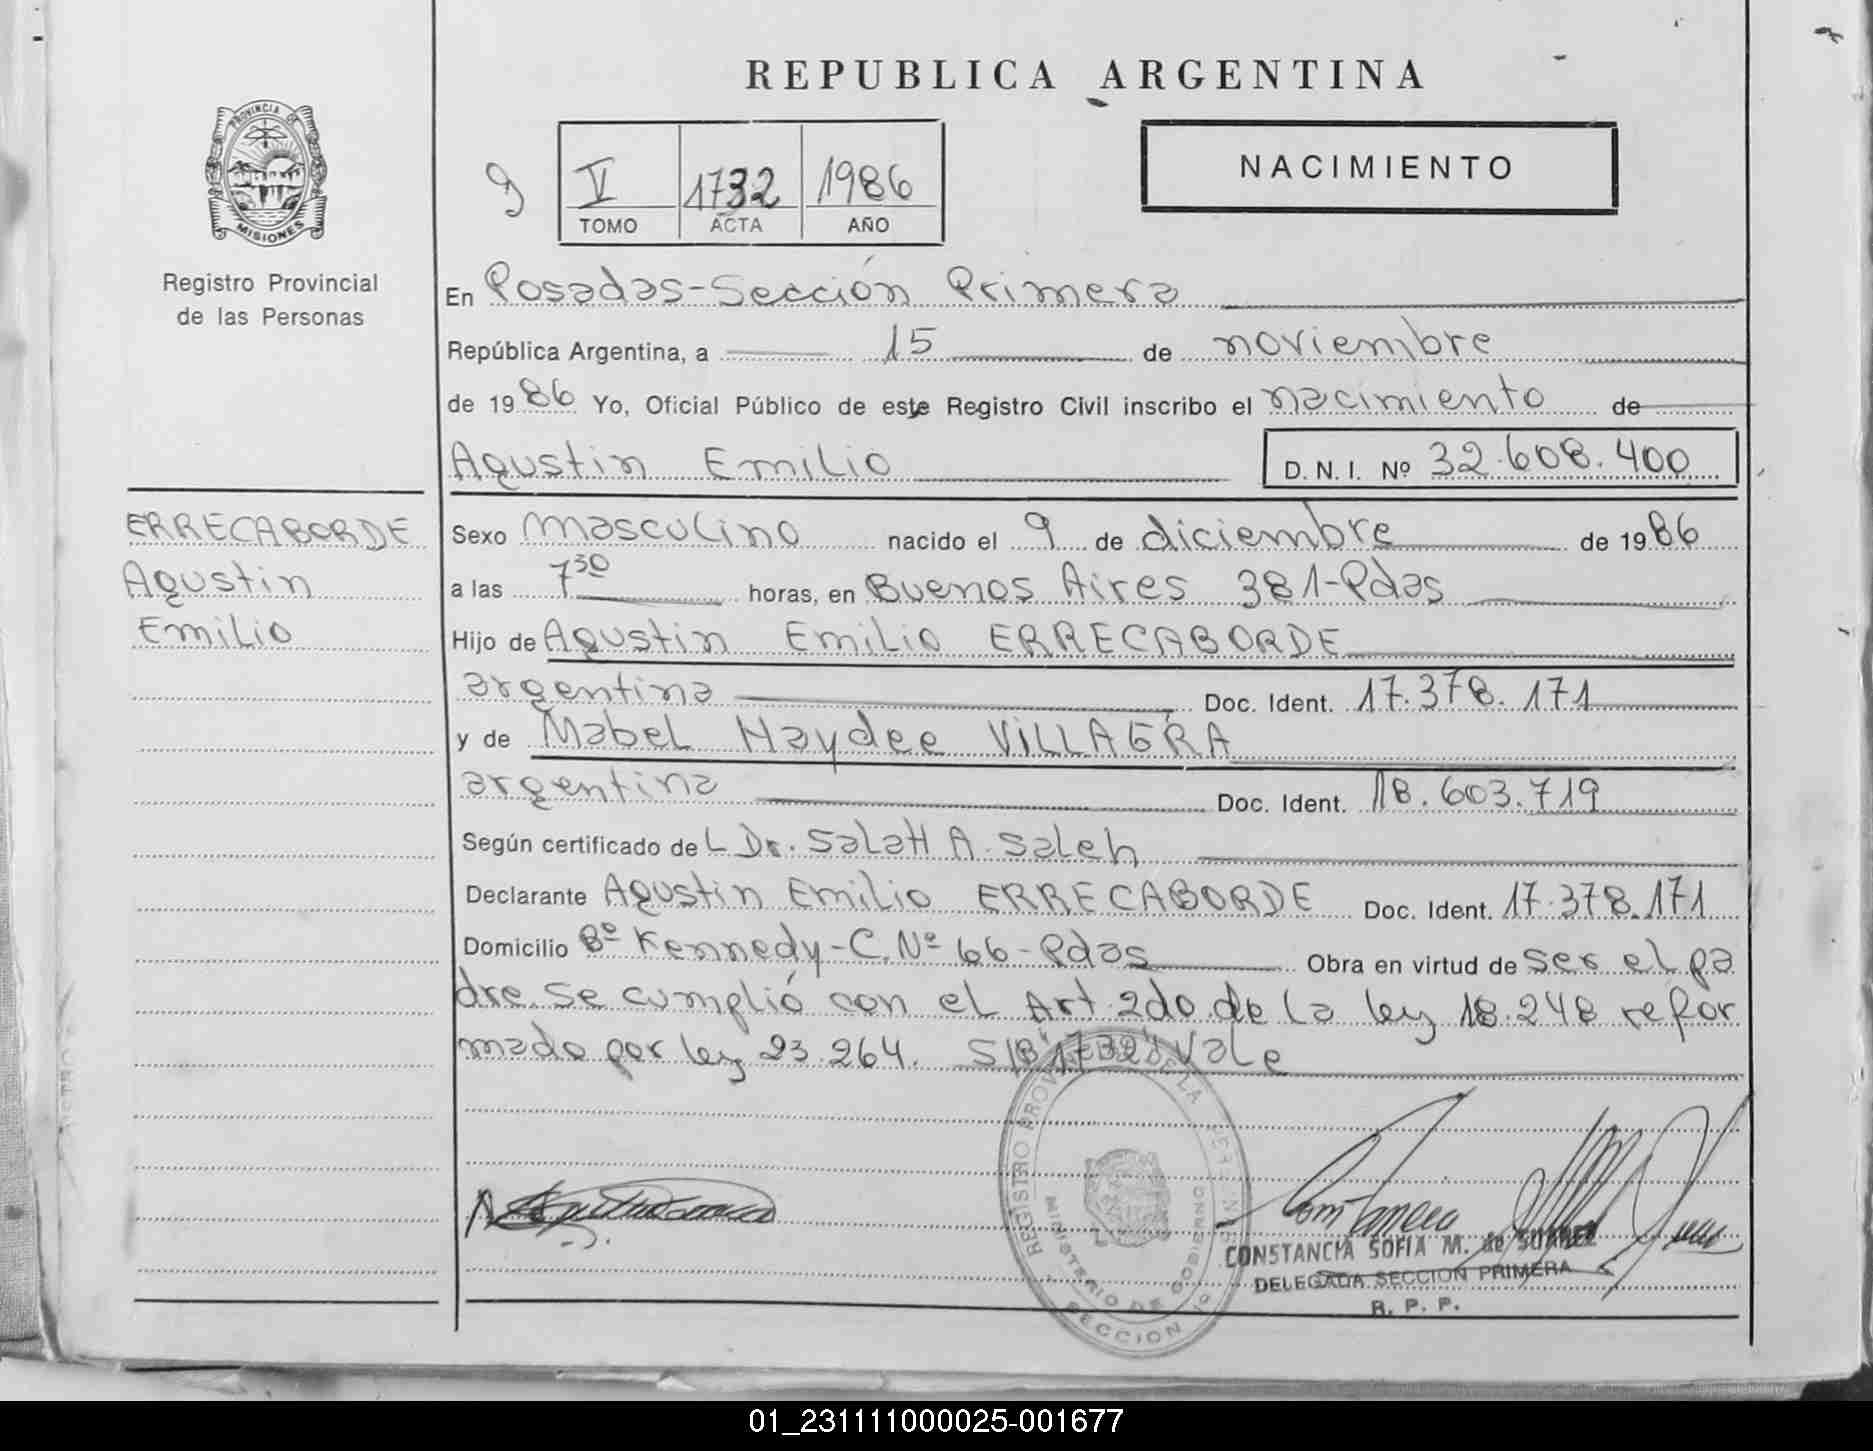 REPUBLICA ARGENTINA
PROVINCIA DE
MISIONES
Registro Provincial
de las Personas
9
V 1732 1986
TOMO ACTA AÑO
NACIMIENTO
En Posadas-Sección Primera
República Argentina, a 15 de noviembre
de 1986 Yo, Oficial Público de este Registro Civil inscribo el nacimiento de
Agustin Emilio D.N.I. Nº 32.608.400
ERRECABORDE
Agustin
Emilio
Sexo masculino nacido el 9 de diciembre de 1986
a las 7 30 horas, en Buenos Aires 381-Pdas
Hijo de Agustin Emilio ERRECABORDE
argentina Doc. Ident. 17.378.171
y de Mabel Haydee VILLAGRA
argentina Doc. Ident. 18.603.719
Según certificado de L Dr. Salatt A. Saleh
Declarante Agustin Emilio ERRECABORDE Doc. Ident. 17.378.171
Domicilio Bº Kennedy-C.Nº 66-Pdas Obra en virtud de ser el pa
dre. Se cumplió con el Art 2do de la ley 18.248 refor
mado por ley 23.264. S/B "1732" Vale
REGISTRO PROVINCIAL DE LAS PERSONAS
MINISTERIO DE GOBIERNO
SECCION 1º
CONSTANCIA SOFIA M. de SUAREZ
DELEGADA SECCION PRIMERA
R. P. P.
01_231111000025-001677